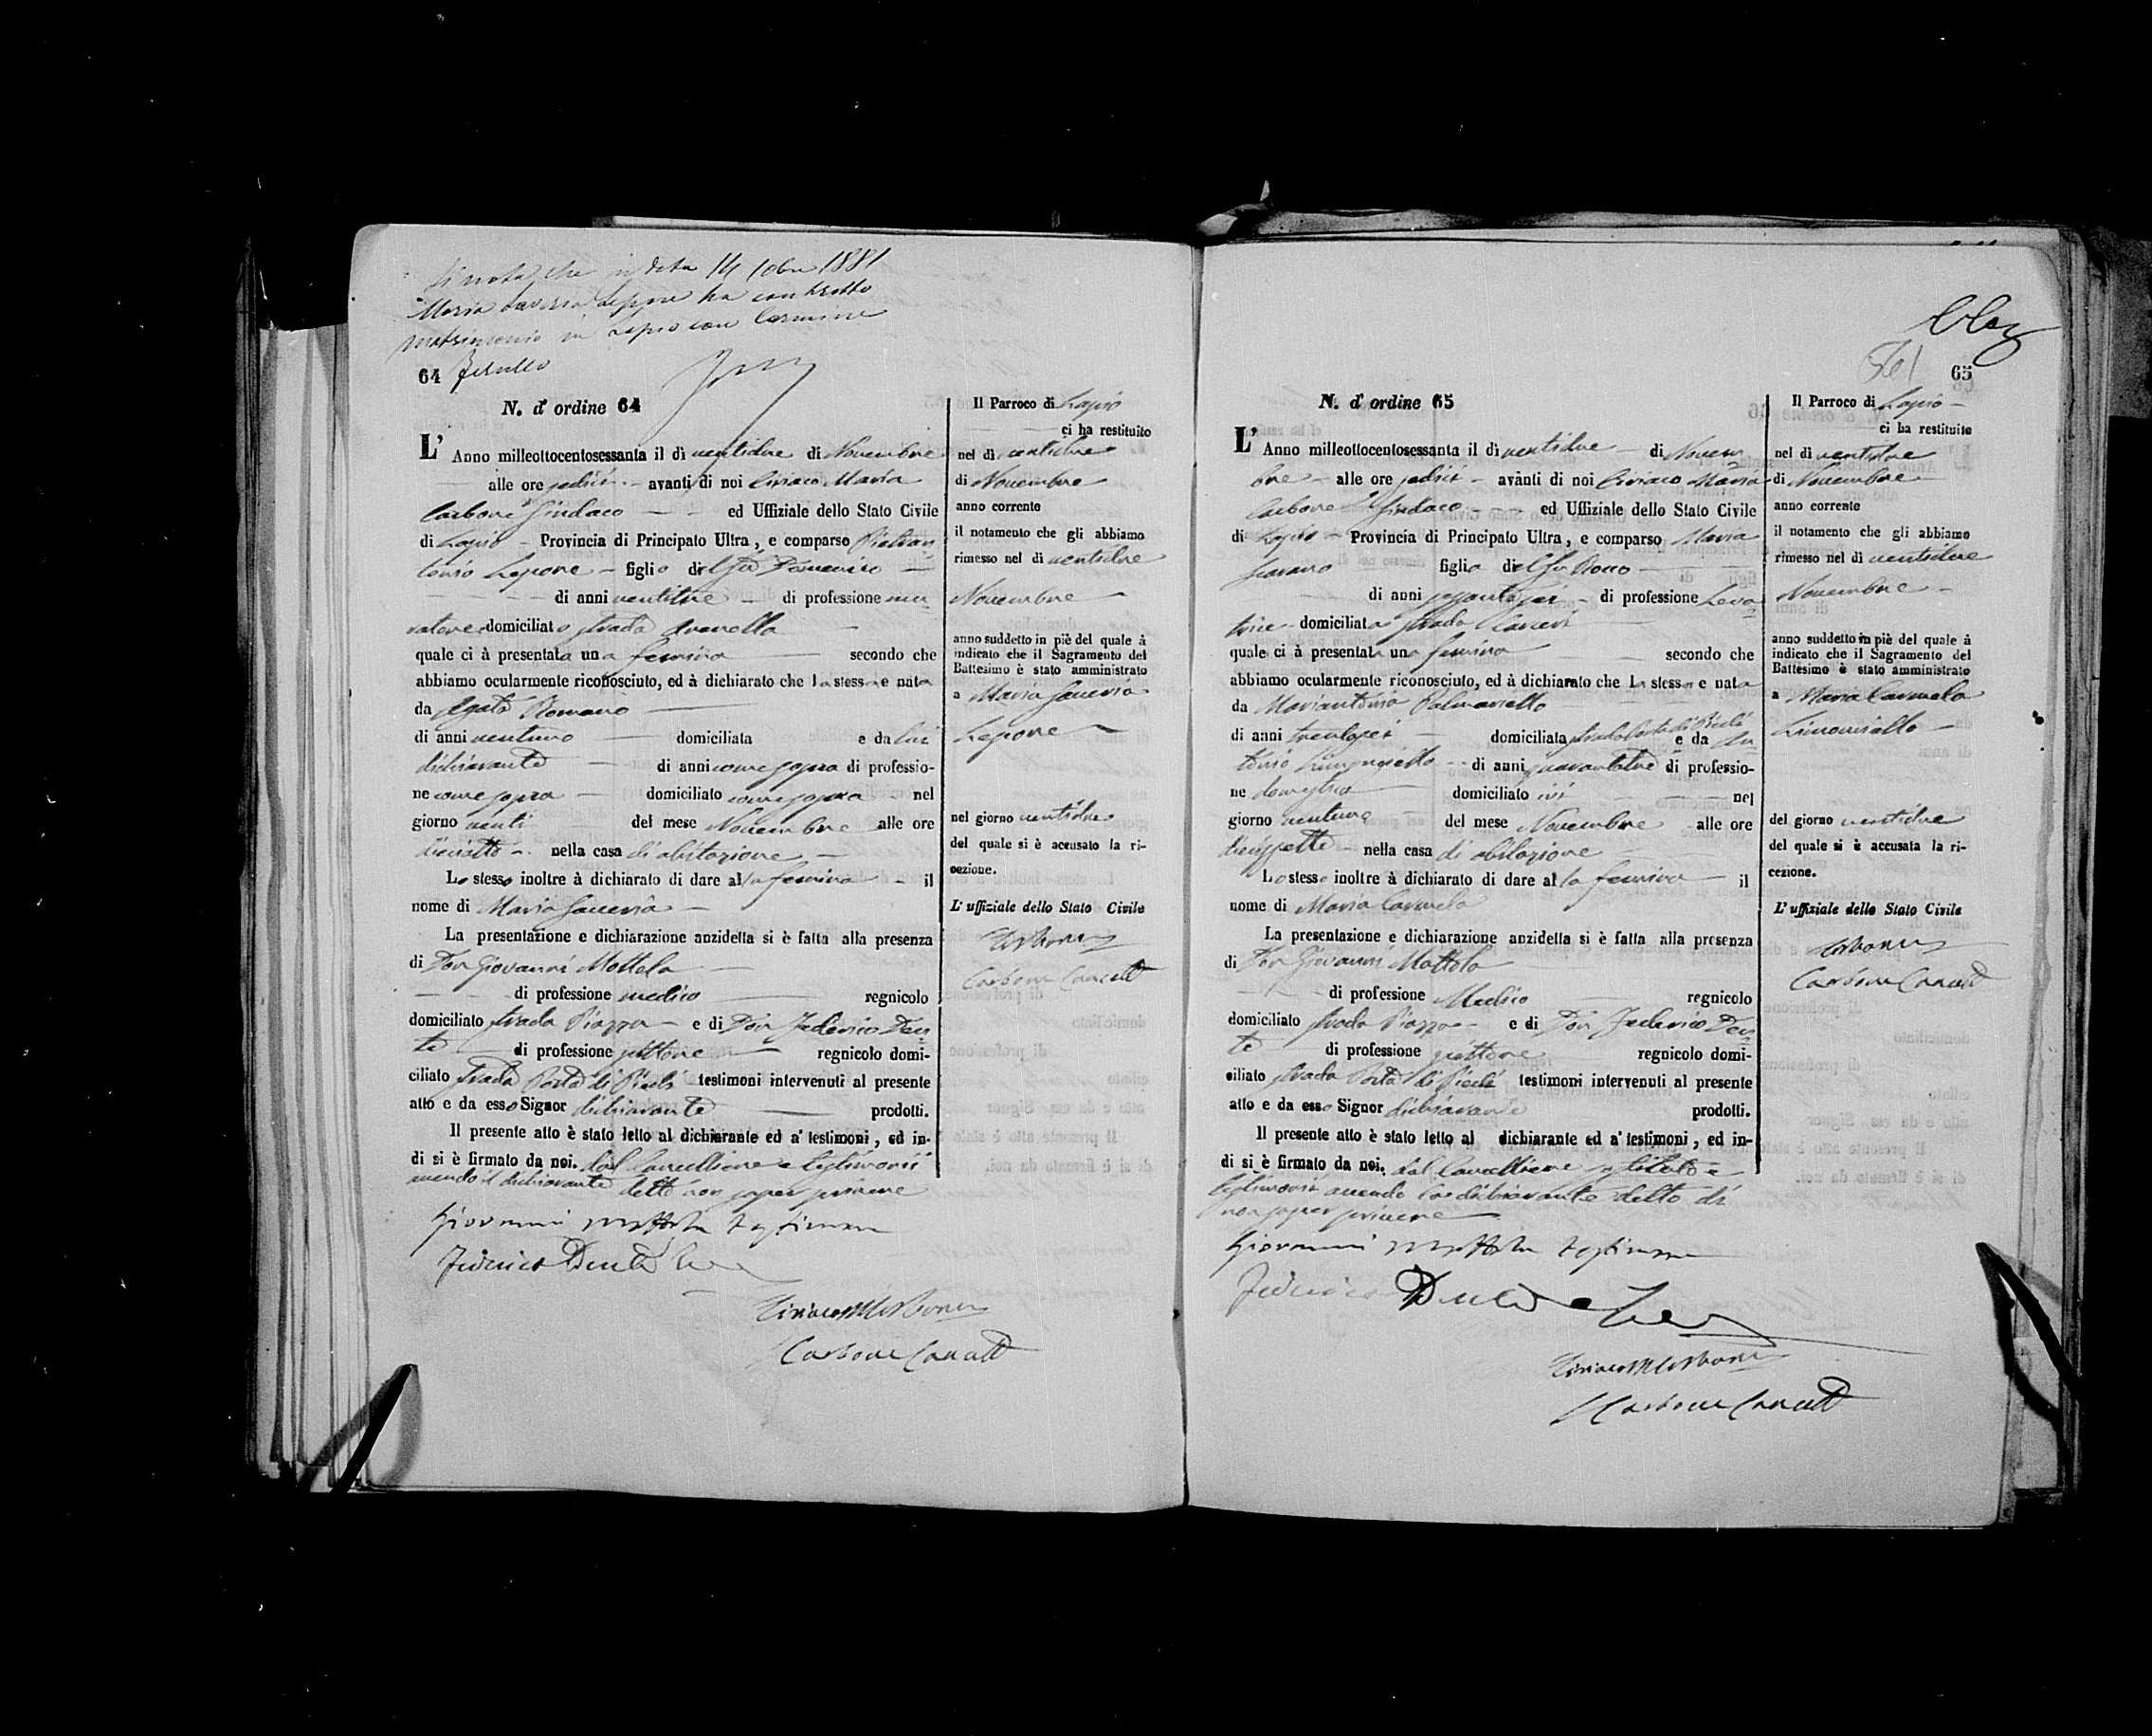 Si nota che in data 14 1881
Maria Saveria Lepore ha contratto
matrimonio in Lapio con Carmine
64
N. d' ordine 64
L' Anno milleottocentosessanta il dì ventidue di Novembre
alle ore sedici avanti di noi Ciriaco Maria
Carbone Sindaco ed Uffiziale dello Stato Civile
di Lapio Provincia di Principato Ultra, e comparso
Lepore figlio del fu Domenico
di anni ventitre di professione mu
ratore domiciliato strada
quale ci à presentata una femina secondo che
abbiamo ocularmente riconosciuto, ed à dichiarato che la stessa e nata
da Agata Romano
di anni ventuno domiciliata e da lui
dichiarante di anni come sopra di professio-
ne come sopra domiciliato come sopra nel
giorno venti del mese Novembre alle ore
dieciotto nella casa di abitazione
Lo stesso inoltre à dichiarato di dare alla femina il
nome di Maria Saveria
La presentazione e dichiarazione anzidetta si è fatta alla presenza
di Don Giovanni Mottola
di professione medico regnicolo
domiciliato strada Piazza e di Don Federico Den
te di professione pittore regnicolo domi-
ciliato strada Porta di Piedi testimoni intervenuti al presente
atto e da esso Signor dichiarante prodotti.
Il presente atto è stato letto al dichiarante ed a' testimoni, ed in-
di si è firmato da noi, dal Cancelliere e testimonii
avendo il dichiarante detto non saper scrivere
Giovanni Mottola testimone
Federico Dente
Ciriaco M Carbone
Carbone
Il Parroco di Lapio
ci ha restituito
nel dì ventidue
di Novembre
anno corrente
il notamento che gli abbiamo
rimesso nel dì ventidue
Novembre
anno suddetto in piè del quale à
indicato che il Sagramento del
Battesimo è stato amministrato
a Maria Saveria
Lepore
nel giorno ventidue
del quale si è accusato la ri-
cezione.
L' uffiziale dello Stato Civile
Carbone
Carbone
65
N. d' ordine 65
L' Anno milleottocentosessanta il dì ventidue di Novem
bre alle ore sedici avanti di noi Ciriaco Maria
Carbone Sindaco ed Uffiziale dello Stato Civile
di Lapio Provincia di Principato Ultra, e comparso Maria
figlia del fu Rocco
di anni sessantasei di professione Leva
trice domiciliata strada Carceri
quale ci à presentata una femina secondo che
abbiamo ocularmente riconosciuto, ed à dichiarato che la stessa e nata
da Mariantonia Palmariello
di anni trentasei domiciliata strada Porta di Piedi e da An
tonio di anni quarantatre di professio-
ne domiciliato ivi nel
giorno ventuno del mese Novembre alle ore
diecissette nella casa di abitazione
Lo stesso inoltre à dichiarato di dare alla femina il
nome di Maria Carmela
La presentazione e dichiarazione anzidetta si è fatta alla presenza
di Don Giovanni Mottola
di professione Medico regnicolo
domiciliato strada Piazza e di Don Federico Den
te di professione pittore regnicolo domi-
ciliato strada Porta di Piedi testimoni intervenuti al presente
atto e da esso Signor dichiarante prodotti.
Il presente atto è stato letto al dichiarante ed a' testimoni, ed in-
di si è firmato da noi, dal Cancelliere sostituto e
testimonii avendo la dichiarante detto di
non saper scrivere
Giovanni Mottola testimone
Federico Dente
Ciriaco M Carbone
Carbone
Il Parroco di Lapio
ci ha restituito
nel dì ventidue
di Novembre
anno corrente
il notamento che gli abbiamo
rimesso nel dì ventidue
Novembre
anno suddetto in piè del quale à
indicato che il Sagramento del
Battesimo è stato amministrato
a Maria Carmela
del giorno ventidue
del quale si è accusata la ri-
cezione.
L' uffiziale dello Stato Civile
Carbone
Carbone